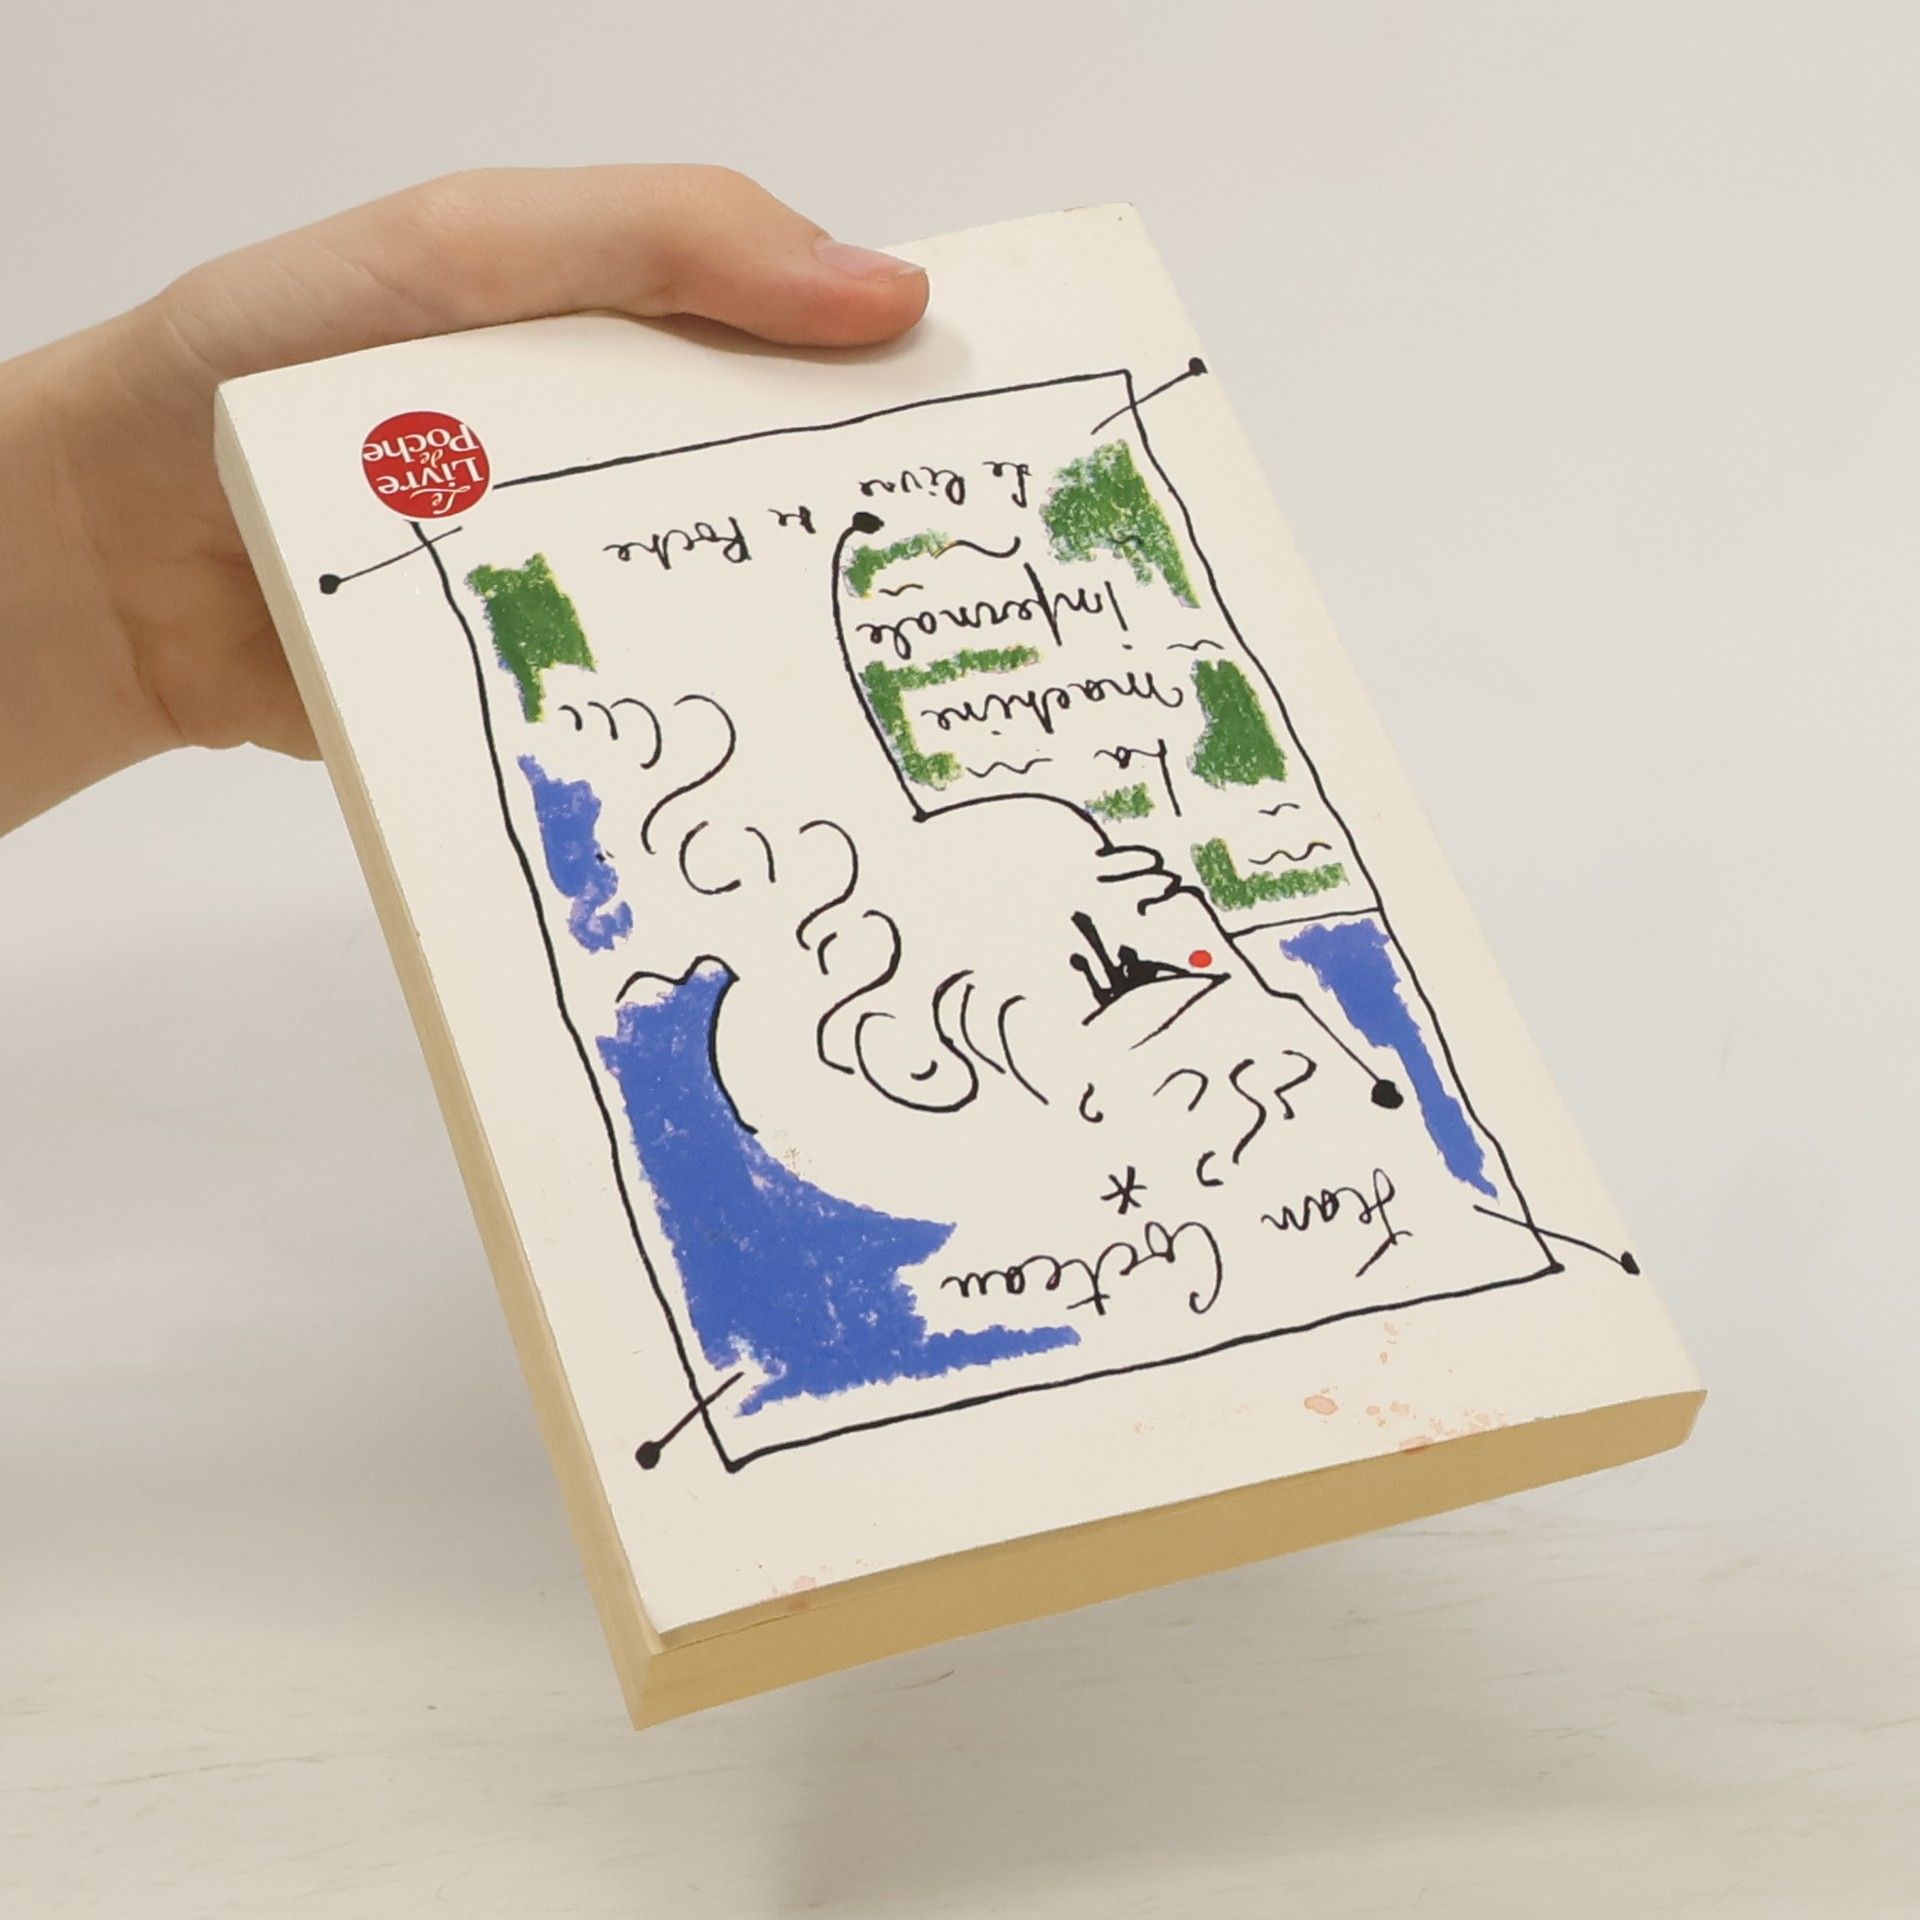 Jean Cocteau
*
La
machine
infernale
Le livre de Poche
Le
Livre
de
Poche